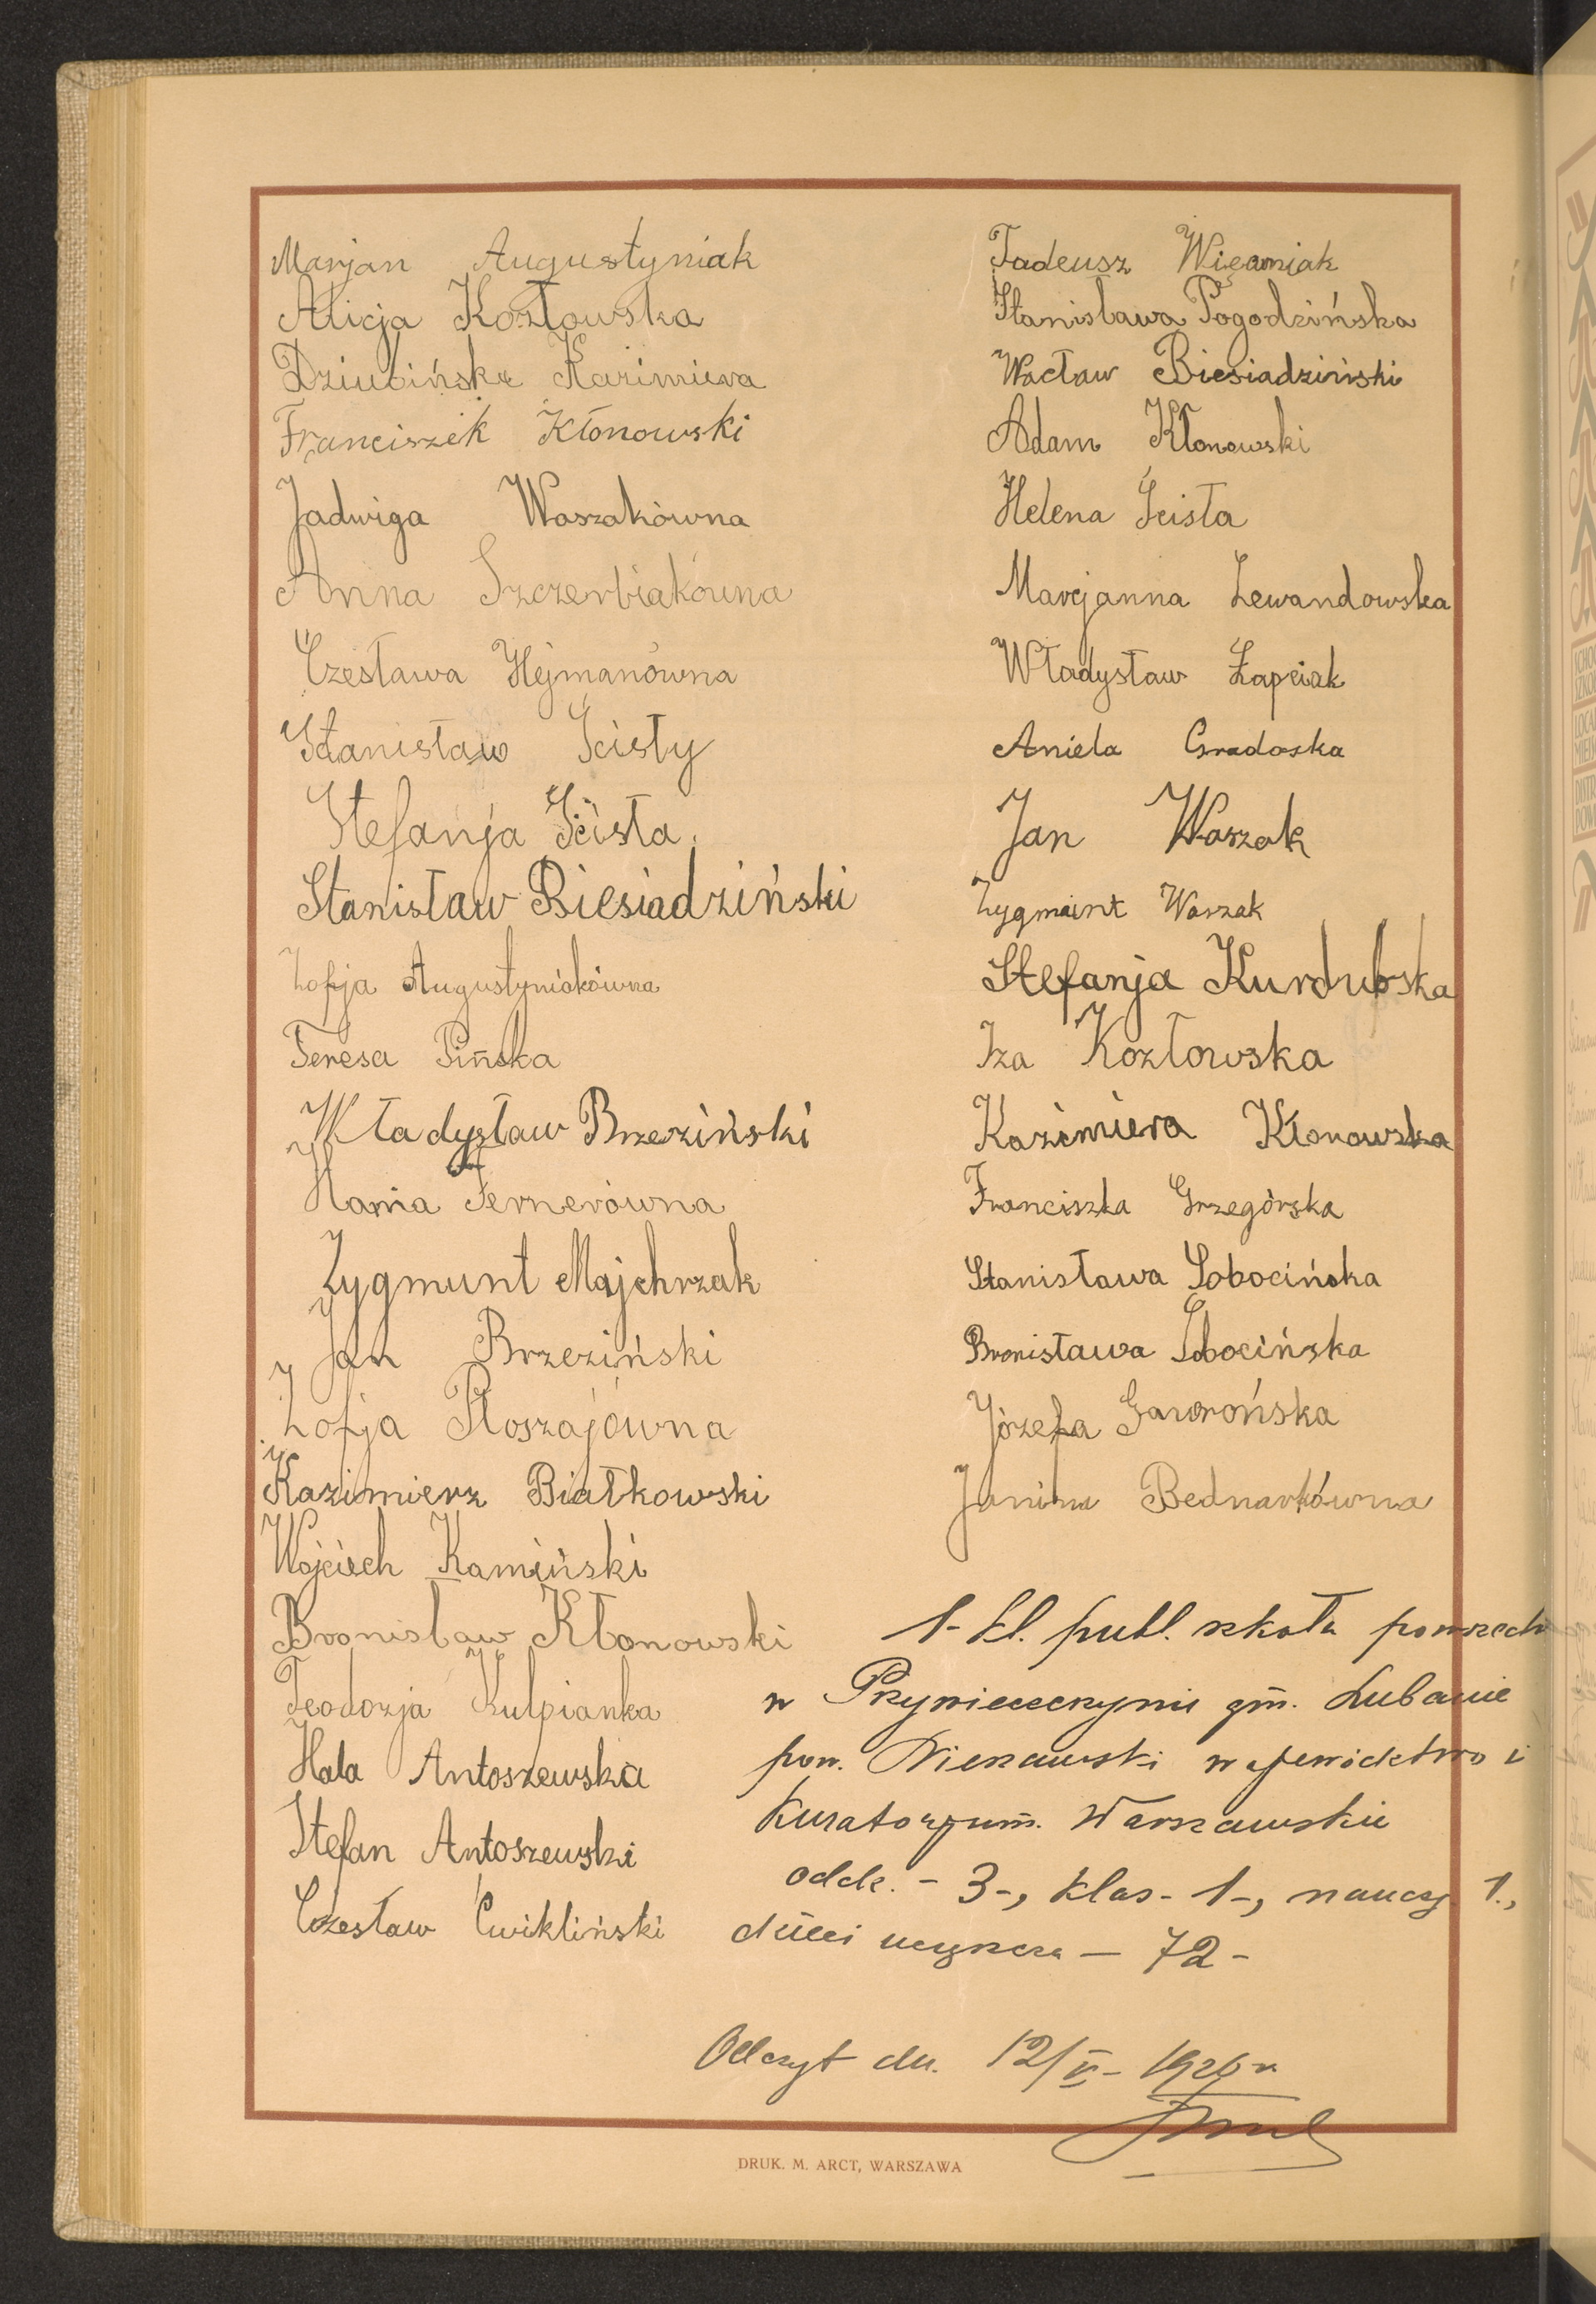 Marjan Augustyniak
Alicja Kozłowska
Dziubińska Kazimiera
Franciszek Kłonowski
Jadwiga Waszakówna
Anna Szczerbiakówna
Czesława Hejmanówna
Stanisław Ścisły
Stefanja Ścisła.
Stanisław Biesiadziński
Zofja Augustyniakówna
Teresa Pińska
Władysław Brzeziński
Hania Fernerówna
Zygmunt Majchrzak
Jan Brzeziński
Zofja Płoszajówna
Kazimierz Białkowski
Wojciech Kamiński
Bronisław Kłonowski
Teodozja Kulpianka
Hala Antoszewska
Stefan Antoszewski
Czesław Ćwikliński
Tadeusz
Stanisława Pogodzińska
Wacław Biesiadziński
Adam Kłonowski
Helena Ścisła
Marcjanna Lewandowska
Władysław Łapciak
Aniela Gradoska
Jan Waszak
Zygmunt Waszak
Stefanja Kurdubska
Iza Kozłowska
Kazimiera Kłonowska
Franciszka Grzegórska
Stanisława Sobocińska
Bronisława Sobocińska
Józefa Gaworońska
Janina Bednarkówna
1-kl. publ. szkoła powszech
w gm. Lubanie
pow. Nieszawski województwo i
Kuratorjum. Warszawskie
oddz. - 3-, klas - 1-, naucz. 1.,
dzieci uczęszcza - 72 -
Odczyt dn. 12/V - 1926 r.
DRUK. M. ARCT, WARSZAWA